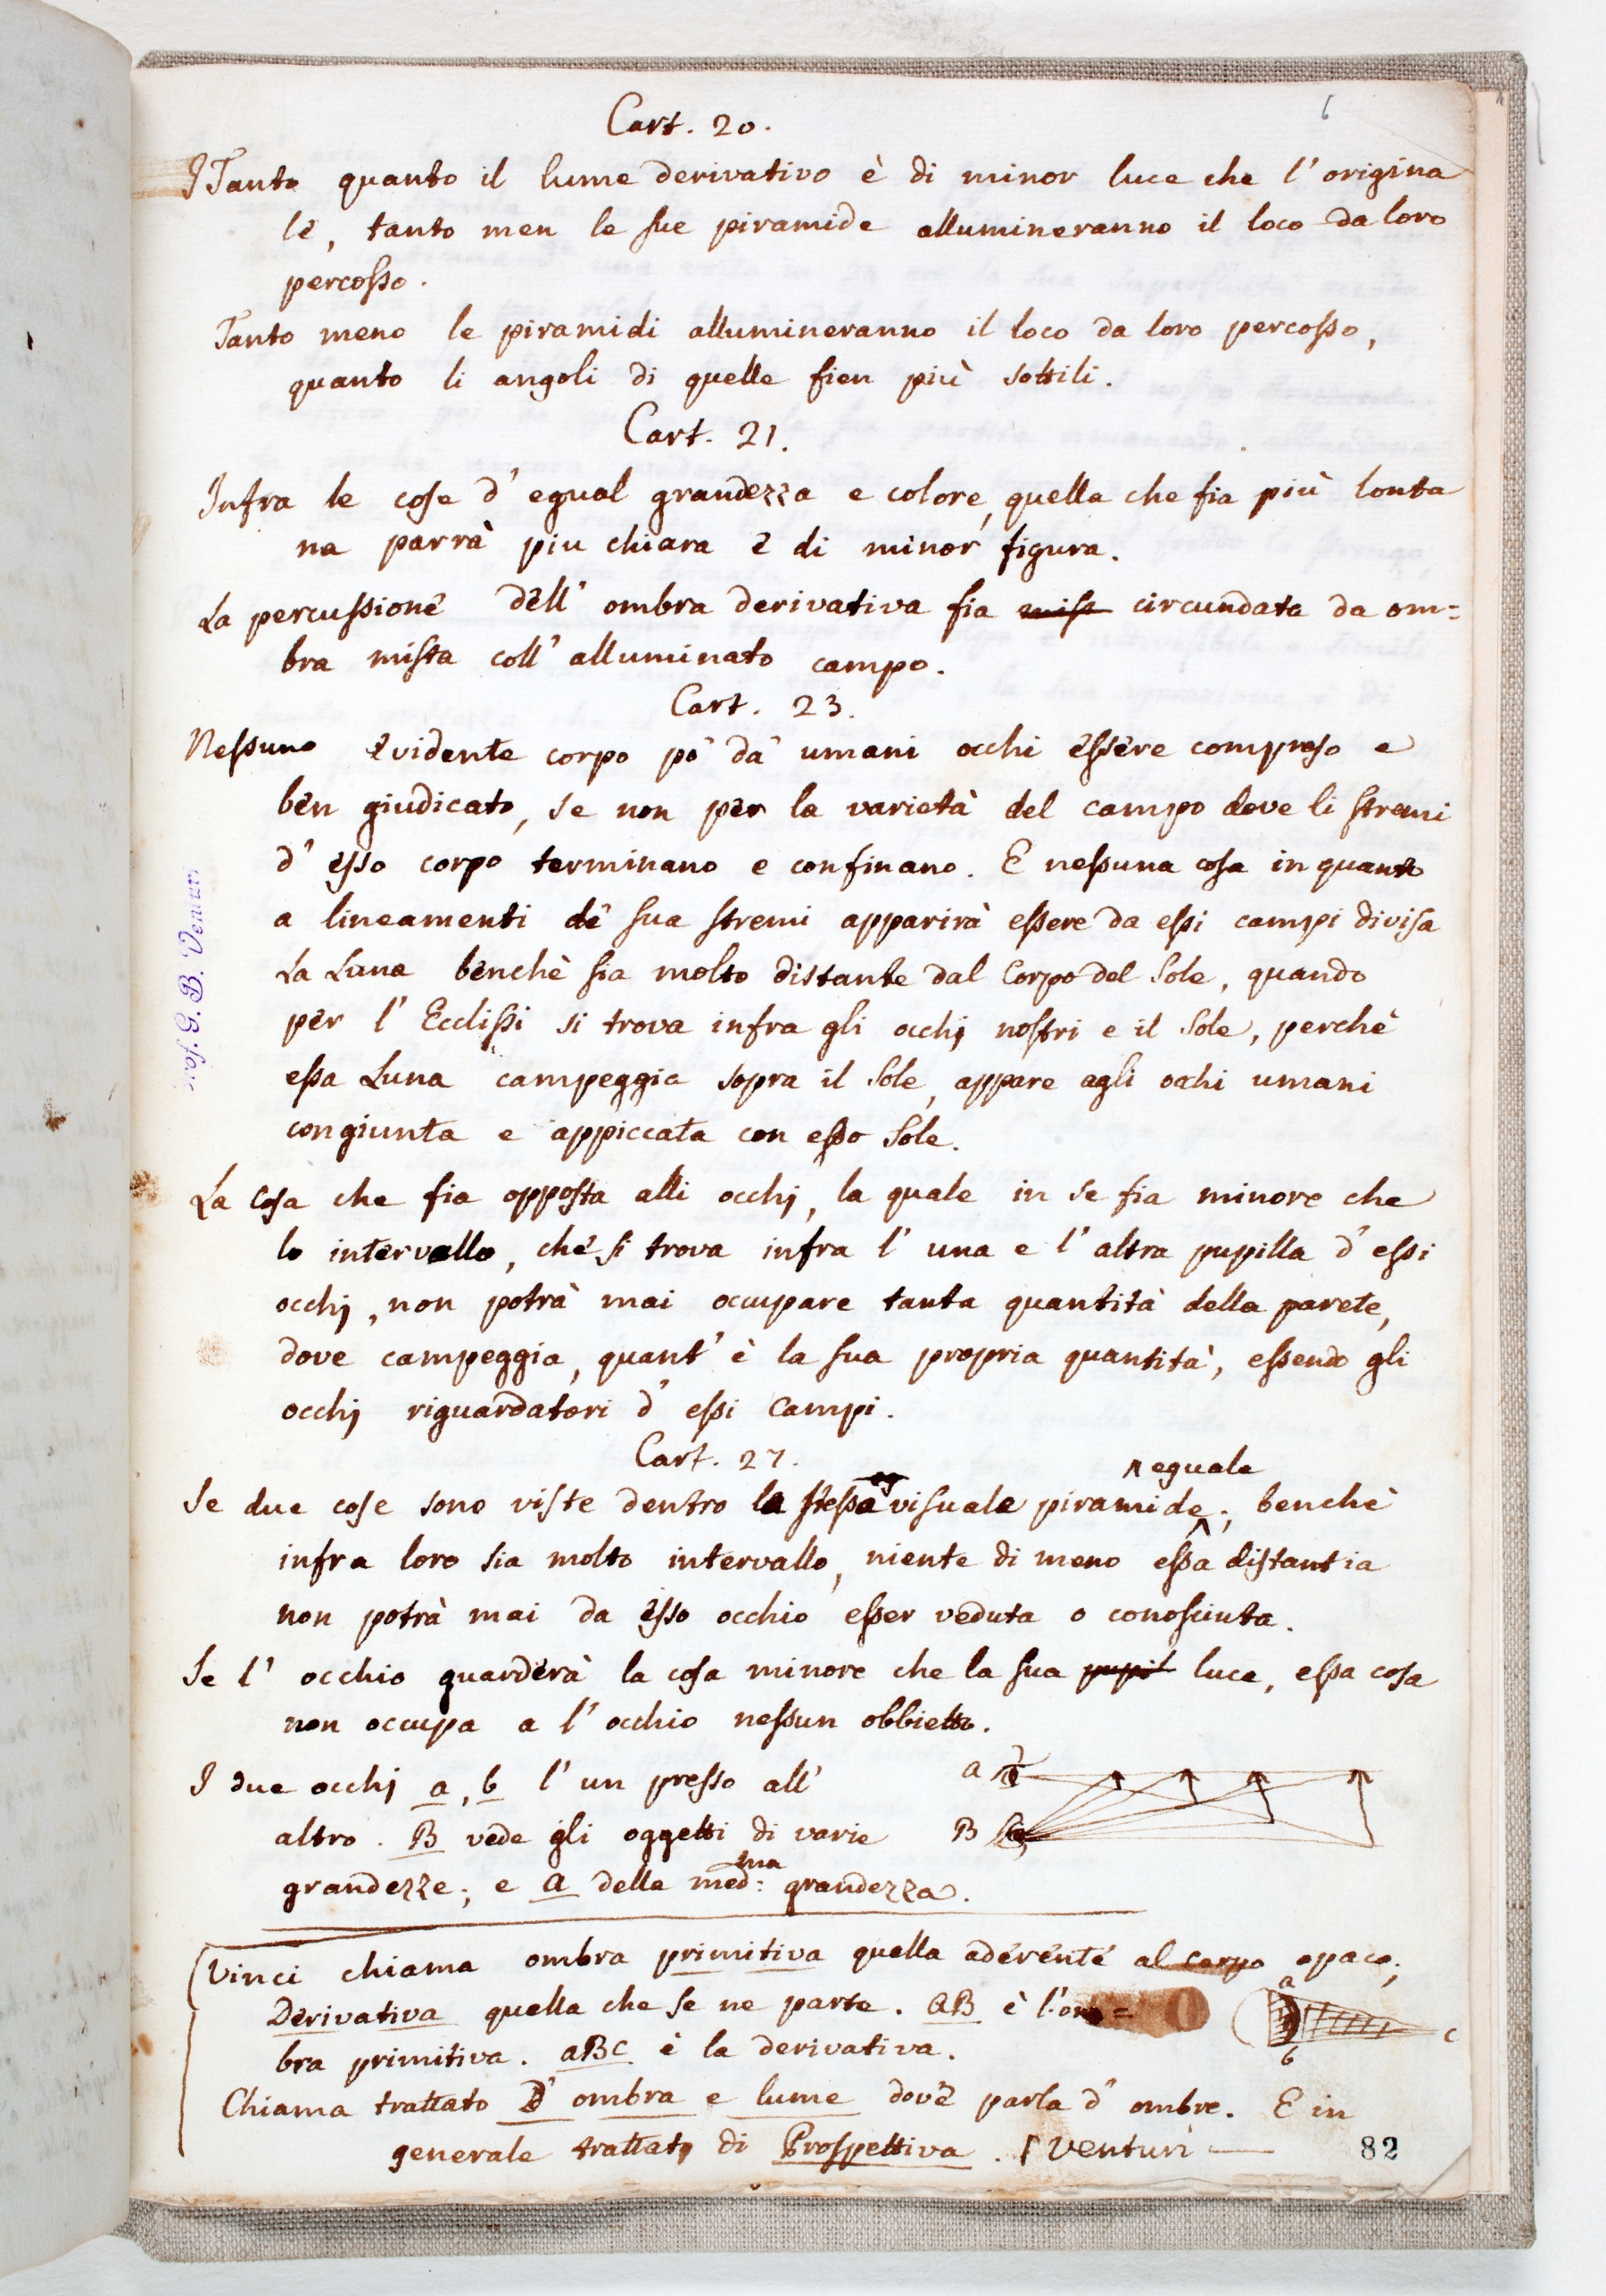 6
Cart. 20.
Tanto quanto il lume derivativo è di minor luce che l'origina
le, tanto men le sue piramide allumineranno il loco da loro
percosso.
Tanto meno le piramidi allumineranno il loco da loro percosso,
quanto li angoli di quelle fien più sottili.
Cart. 21.
Infra le cose d'egual grandezza e colore, quella che fia più lonta
na parrà piu chiara e di minor figura.
La percussione dell'ombra derivativa fia mist circundata da om=
bra mista coll'alluminato campo.
Cart. 23.
Nessuno evidente corpo pò da umani occhi essere compreso e
ben giudicato, se non per la varietà del campo dove li stremi
d'esso corpo terminano e confinano. E nessuna cosa in quanto
a lineamenti de sua stremi apparirà essere da essi campi divisa
La Luna benchè sia molto distante dal Corpo del Sole, quando
per l'Ecclissi si trova infra gli occhj nostri e il Sole, perchè
essa Luna campeggia sopra il Sole, appare agli occhi umani
congiunta e appiccata con esso Sole.
La cosa che fia opposta alli occhj, la quale in se fia minore che
lo intervallo, che si trova infra l'una e l'altra pupilla d'essi
occhj, non potrà mai occupare tanta quantità della parete,
dove campeggia, quant'è la sua propria quantità, essendo gli
occhj riguardatori d'essi Campi.
Cart. 27.
eguale
Se due cose sono viste dentro la stessa visuale piramide; benchè
infra loro sia molto intervallo, niente di meno essa distantia
non potrà mai da esso occhio esser veduta o conosciuta.
Se l'occhio guarderà la cosa minore che la sua pupil luce, essa cosa
non occupa a l'occhio nessun obbietto.
I due occhj a, b l'un presso all'
altro. B vede gli oggetti di varie
grandezze; e a della med:ma grandezza.
a
B
Vinci chiama ombra primitiva quella aderente al corpo opaco;
Derivativa quella che se ne parte. AB è l'om=
bra primitiva. aBc è la derivativa.
a
b
c
Chiama trattato D'ombra e lume dov'è parla d'ombre. E in
generale trattato di Prospettiva. Venturi
82
Prof. G. B. Venturi